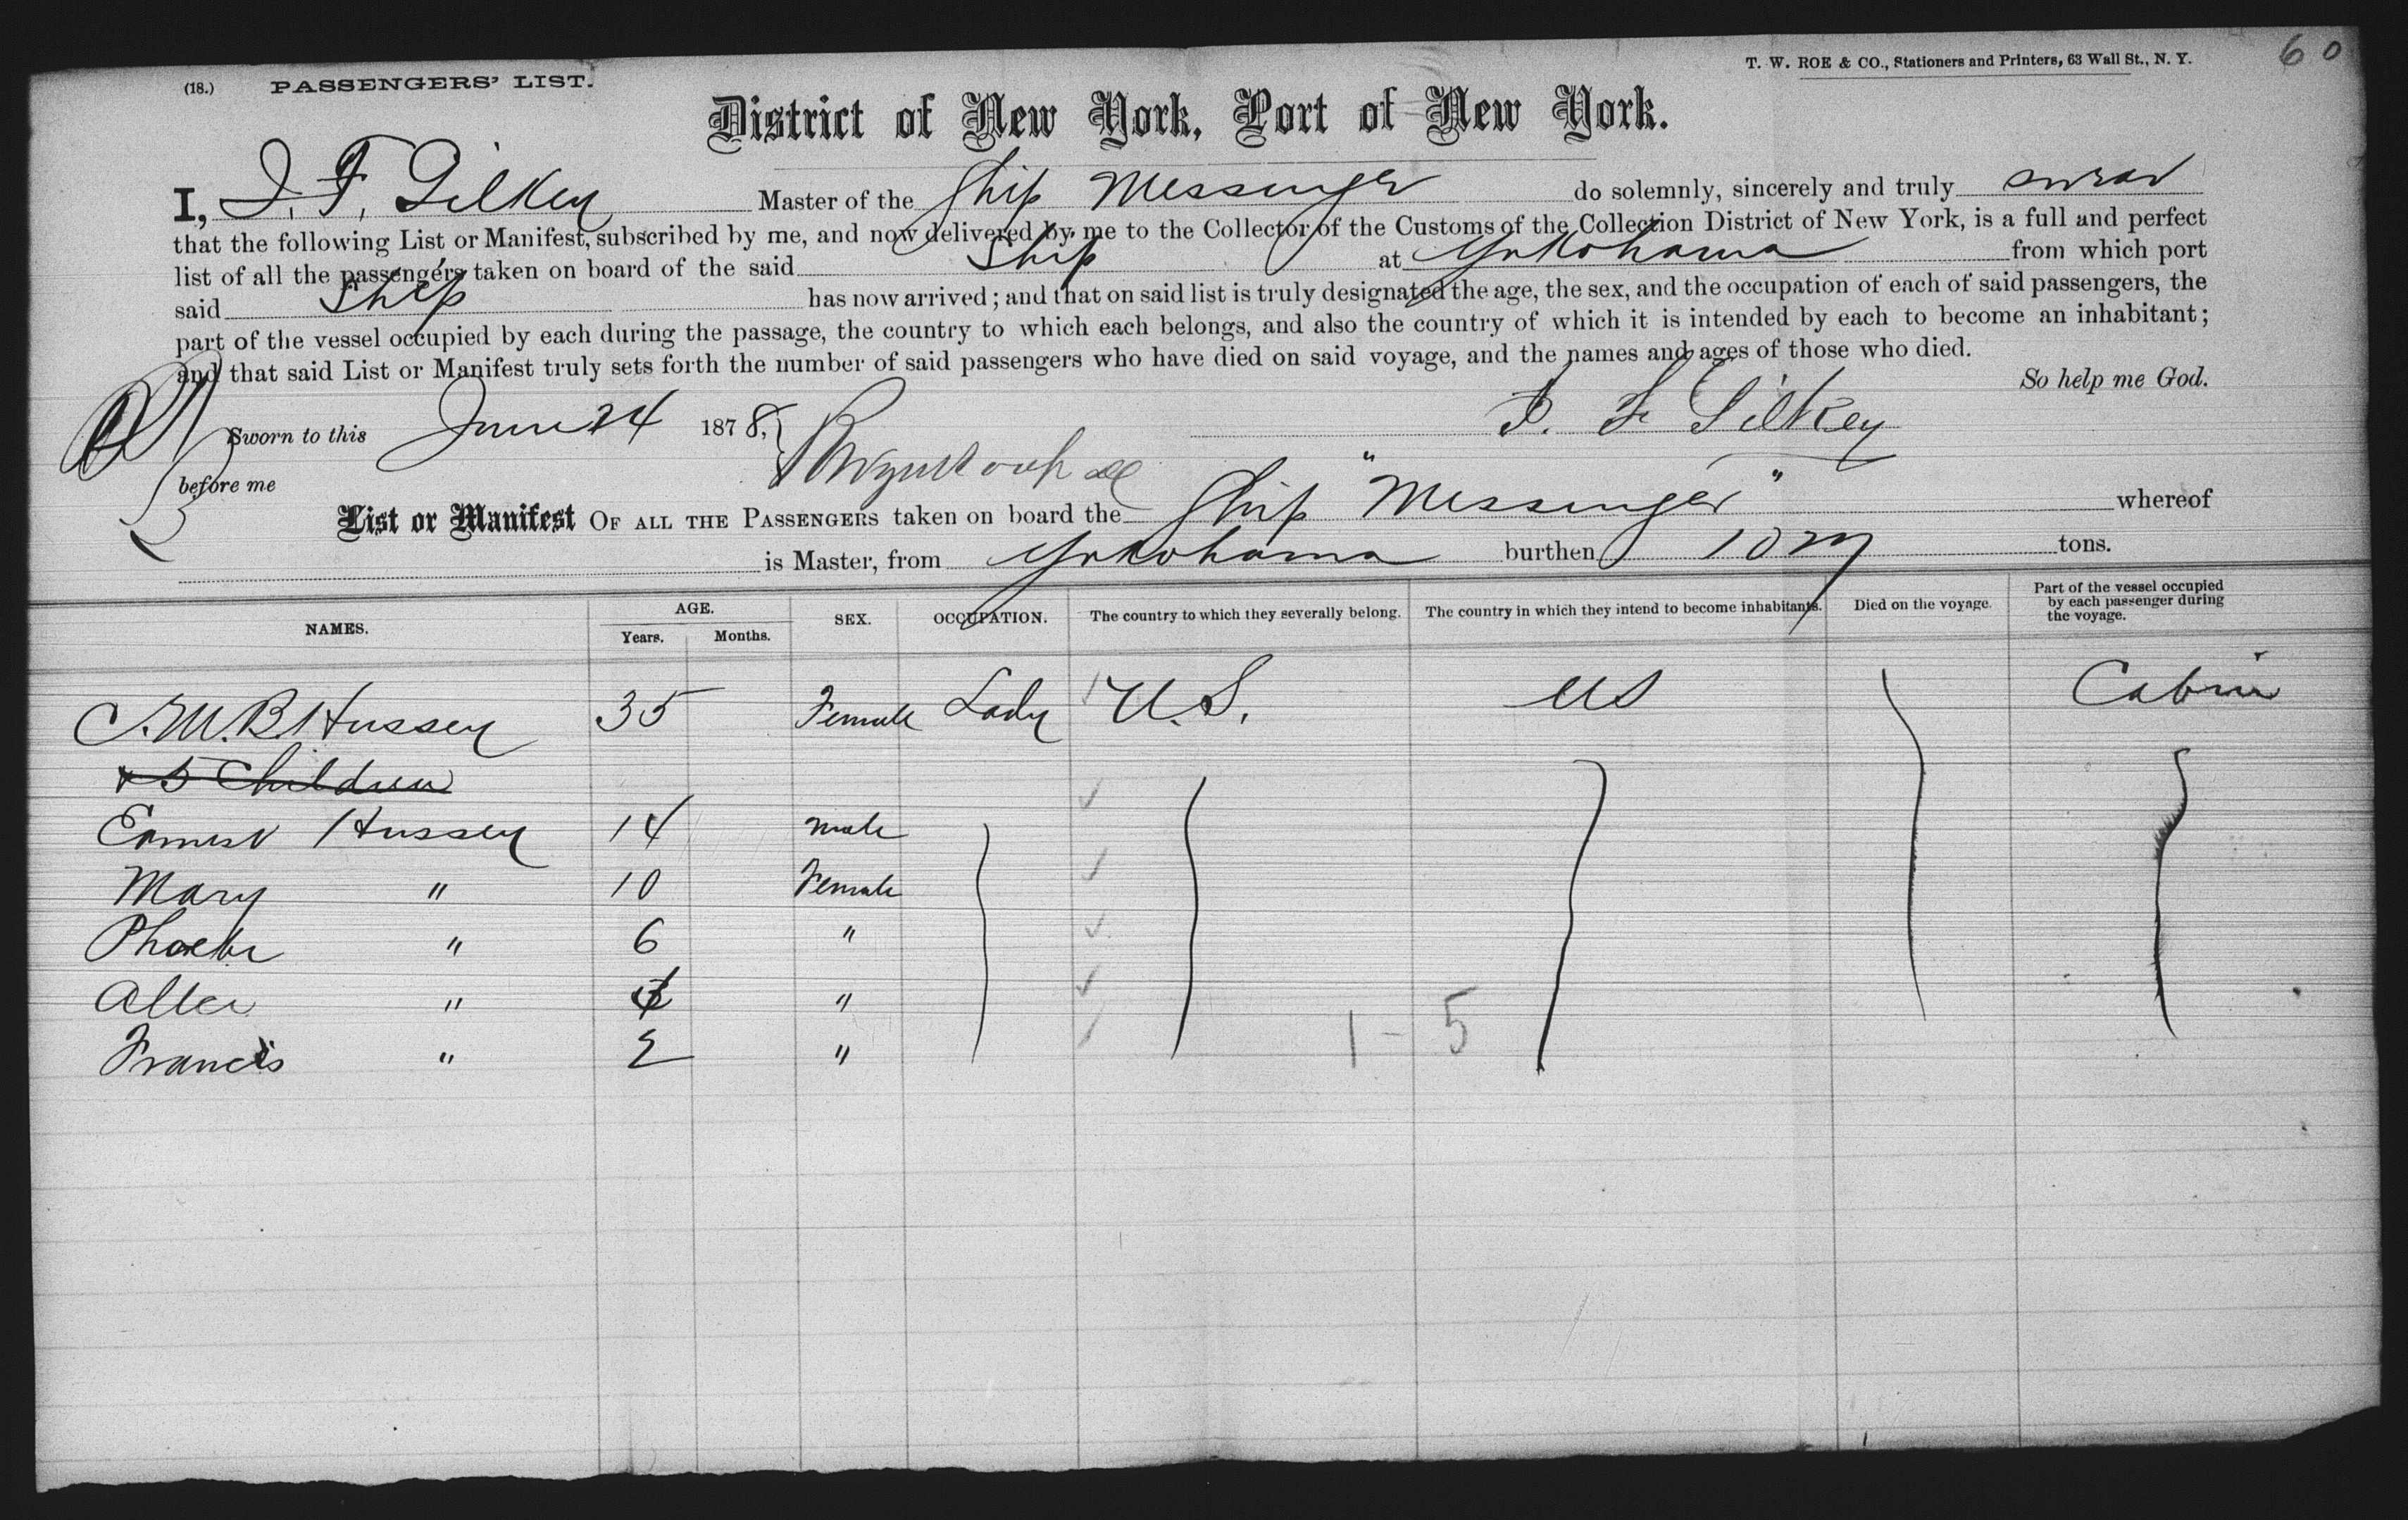 60
(18.) PASSENGERS' LIST. T. W. ROE & CO., Stationers and Printers, 63 Wall St., N. Y.
District of New York, Port of New York.
I, J. F. Gilkey Master of the Ship Messenger do solemnly, sincerely and truly swear
that the following List or Manifest, subscribed by me, and now delivered by me to the Collector of the Customs of the Collection District of New York, is a full and perfect
list of all the passengers taken on board of the said Ship at Yokohama from which port
said Ship has now arrived; and that on said list is truly designated the age, the sex, and the occupation of each of said passengers, the
part of the vessel occupied by each during the passage, the country to which each belongs, and also the country of which it is intended by each to become an inhabitant;
and that said List or Manifest truly sets forth the number of said passengers who have died on said voyage, and the names and ages of those who died.
So help me God.
Sworn to this June 24 1878, J. F. Gilkey
before me
List or Manifest OF ALL THE PASSENGERS taken on board the Ship "Messenger" whereof
is Master, from Yokohama burthen tons.
NAMES. AGE. Years. Months. SEX. OCCUPATION. The country to which they severally belong. The country in which they intend to become inhabitants. Died on the voyage. Part of the vessel occupied by each passenger during the voyage.
C. M. B. Hussey 35 Female Lady U.S. US Cabin
& 5 Children
Ernest Hussey 14 male
Mary " 10 Female
Phoebe " 6 "
Alice " "
Francis " 2 "
1 - 5